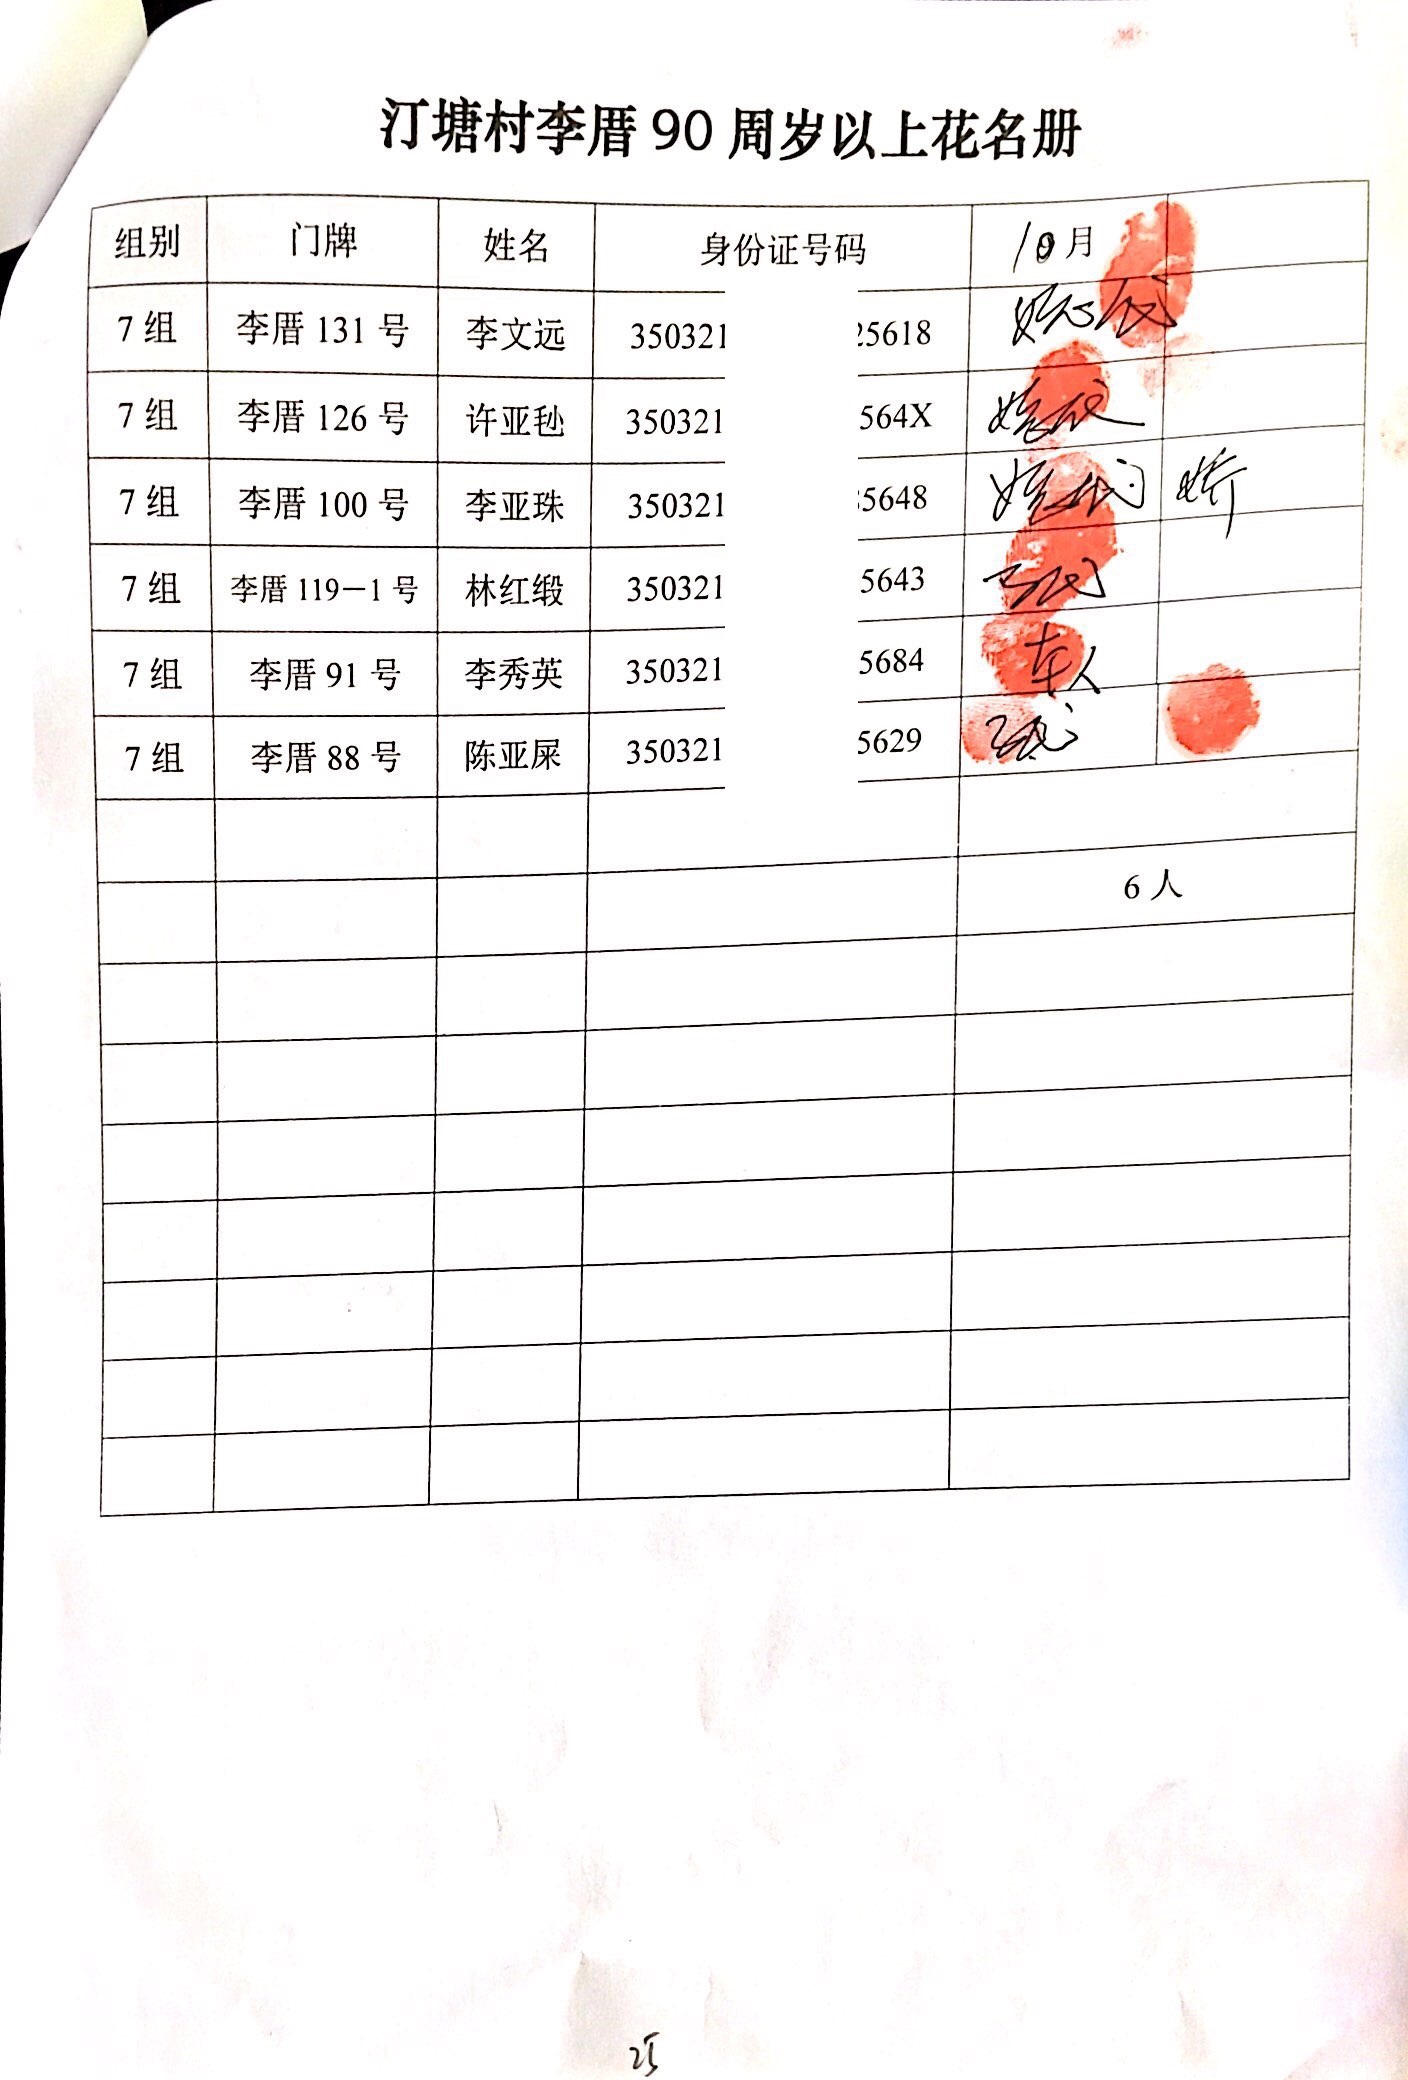 汀塘村李厝 90 周岁以上花名册
组别 门牌 姓名 身份证号码 10月
7 组 李厝 131 号 李文远 350321 25618
7 组 李厝 126 号 许亚毡 350321 564X
7 组 李厝 100 号 李亚珠 350321 5648
7 组 李厝 119－1 号 林红缎 350321 5643
7 组 李厝 91 号 李秀英 350321 5684 本人
7 组 李厝 88 号 陈亚屎 350321 5629
6 人
25